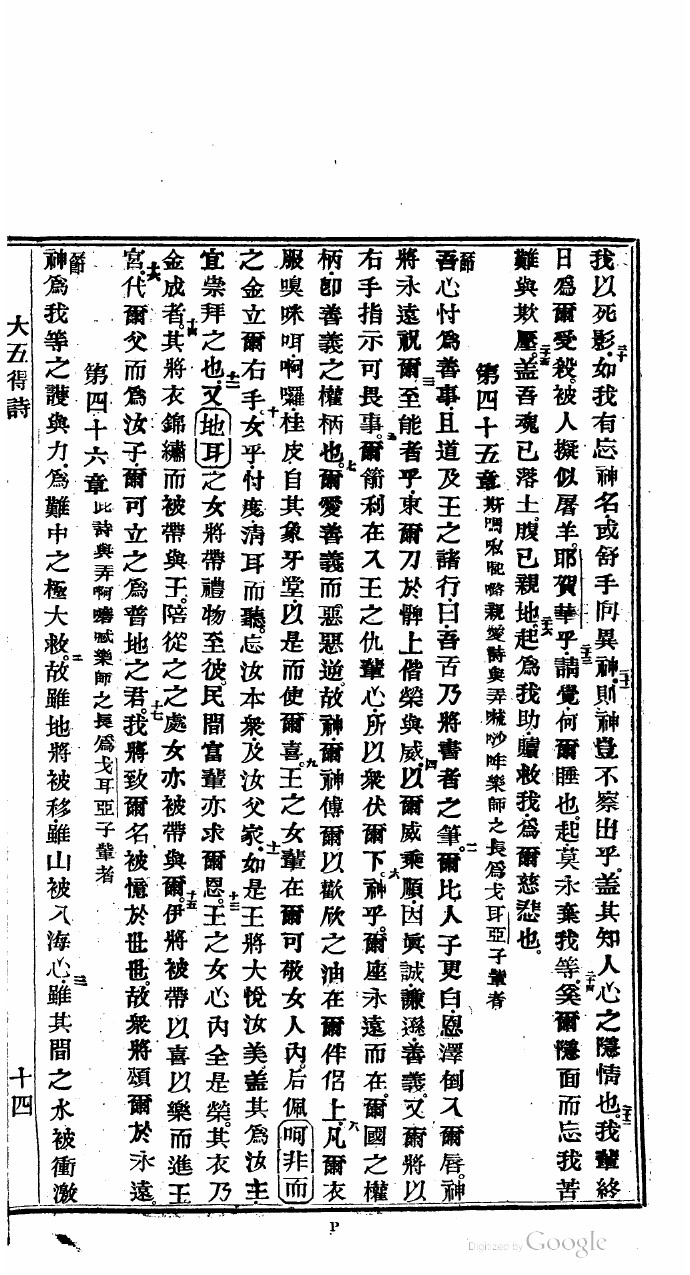 我以死影如我有忘神名或舒手向異神則神豈不察出乎蓋其知人心之隱情也我輩終
日爲爾受殺被人擬似屠羊耶賀華乎請覺何爾睡也起莫永棄我等奚爾隱面而忘我苦
難與欺壓蓋吾魂已落土腹已親地起爲我助贖救我爲爾慈悲也
第四十五章 親愛詩與弄 樂師之長爲戈耳亞子輩者
吾心忖爲善事且道及王之諸行曰吾舌乃將書者之筆爾比人子更白恩澤倒入爾唇神
將永遠祝爾至能者乎束爾刀於髀上偕榮與威以爾威乘順因眞誠謙遜善義又爾將以
右手指示可畏事爾箭利在入王之仇輩心所以衆伏爾下神乎爾座永遠而在爾國之權
柄卽善義之權柄也爾愛善義而惡惡逆故神爾神傅爾以歡欣之油在爾伴侶上凡爾衣
服嗅咪呾啊囉桂皮自其象牙堂以是而使爾喜王之女輩在爾可敬女人內后佩呵非而
之金立爾右手女乎忖度淸耳而聽忘汝本衆及汝父家如是王將大悅汝美蓋其爲汝主
宜崇拜之也又地耳之女將帶禮物至彼民間富輩亦求爾恩王之女心內全是榮其衣乃
金成者其將衣錦繡而被帶與王陪從之之處女亦被帶與爾伊將被帶以喜以樂而進王
宮代爾父而爲汝子爾可立之爲普地之君我將致爾名被憶於世世故衆將頌爾於永遠
第四十六章 此詩與弄啊 樂師之長爲戈耳亞子輩者
神爲我等之護與力爲難中之極大救故雖地將被移雖山被入海心雖其間之水被衝激
大五得詩 十四
P
Digitized by Google